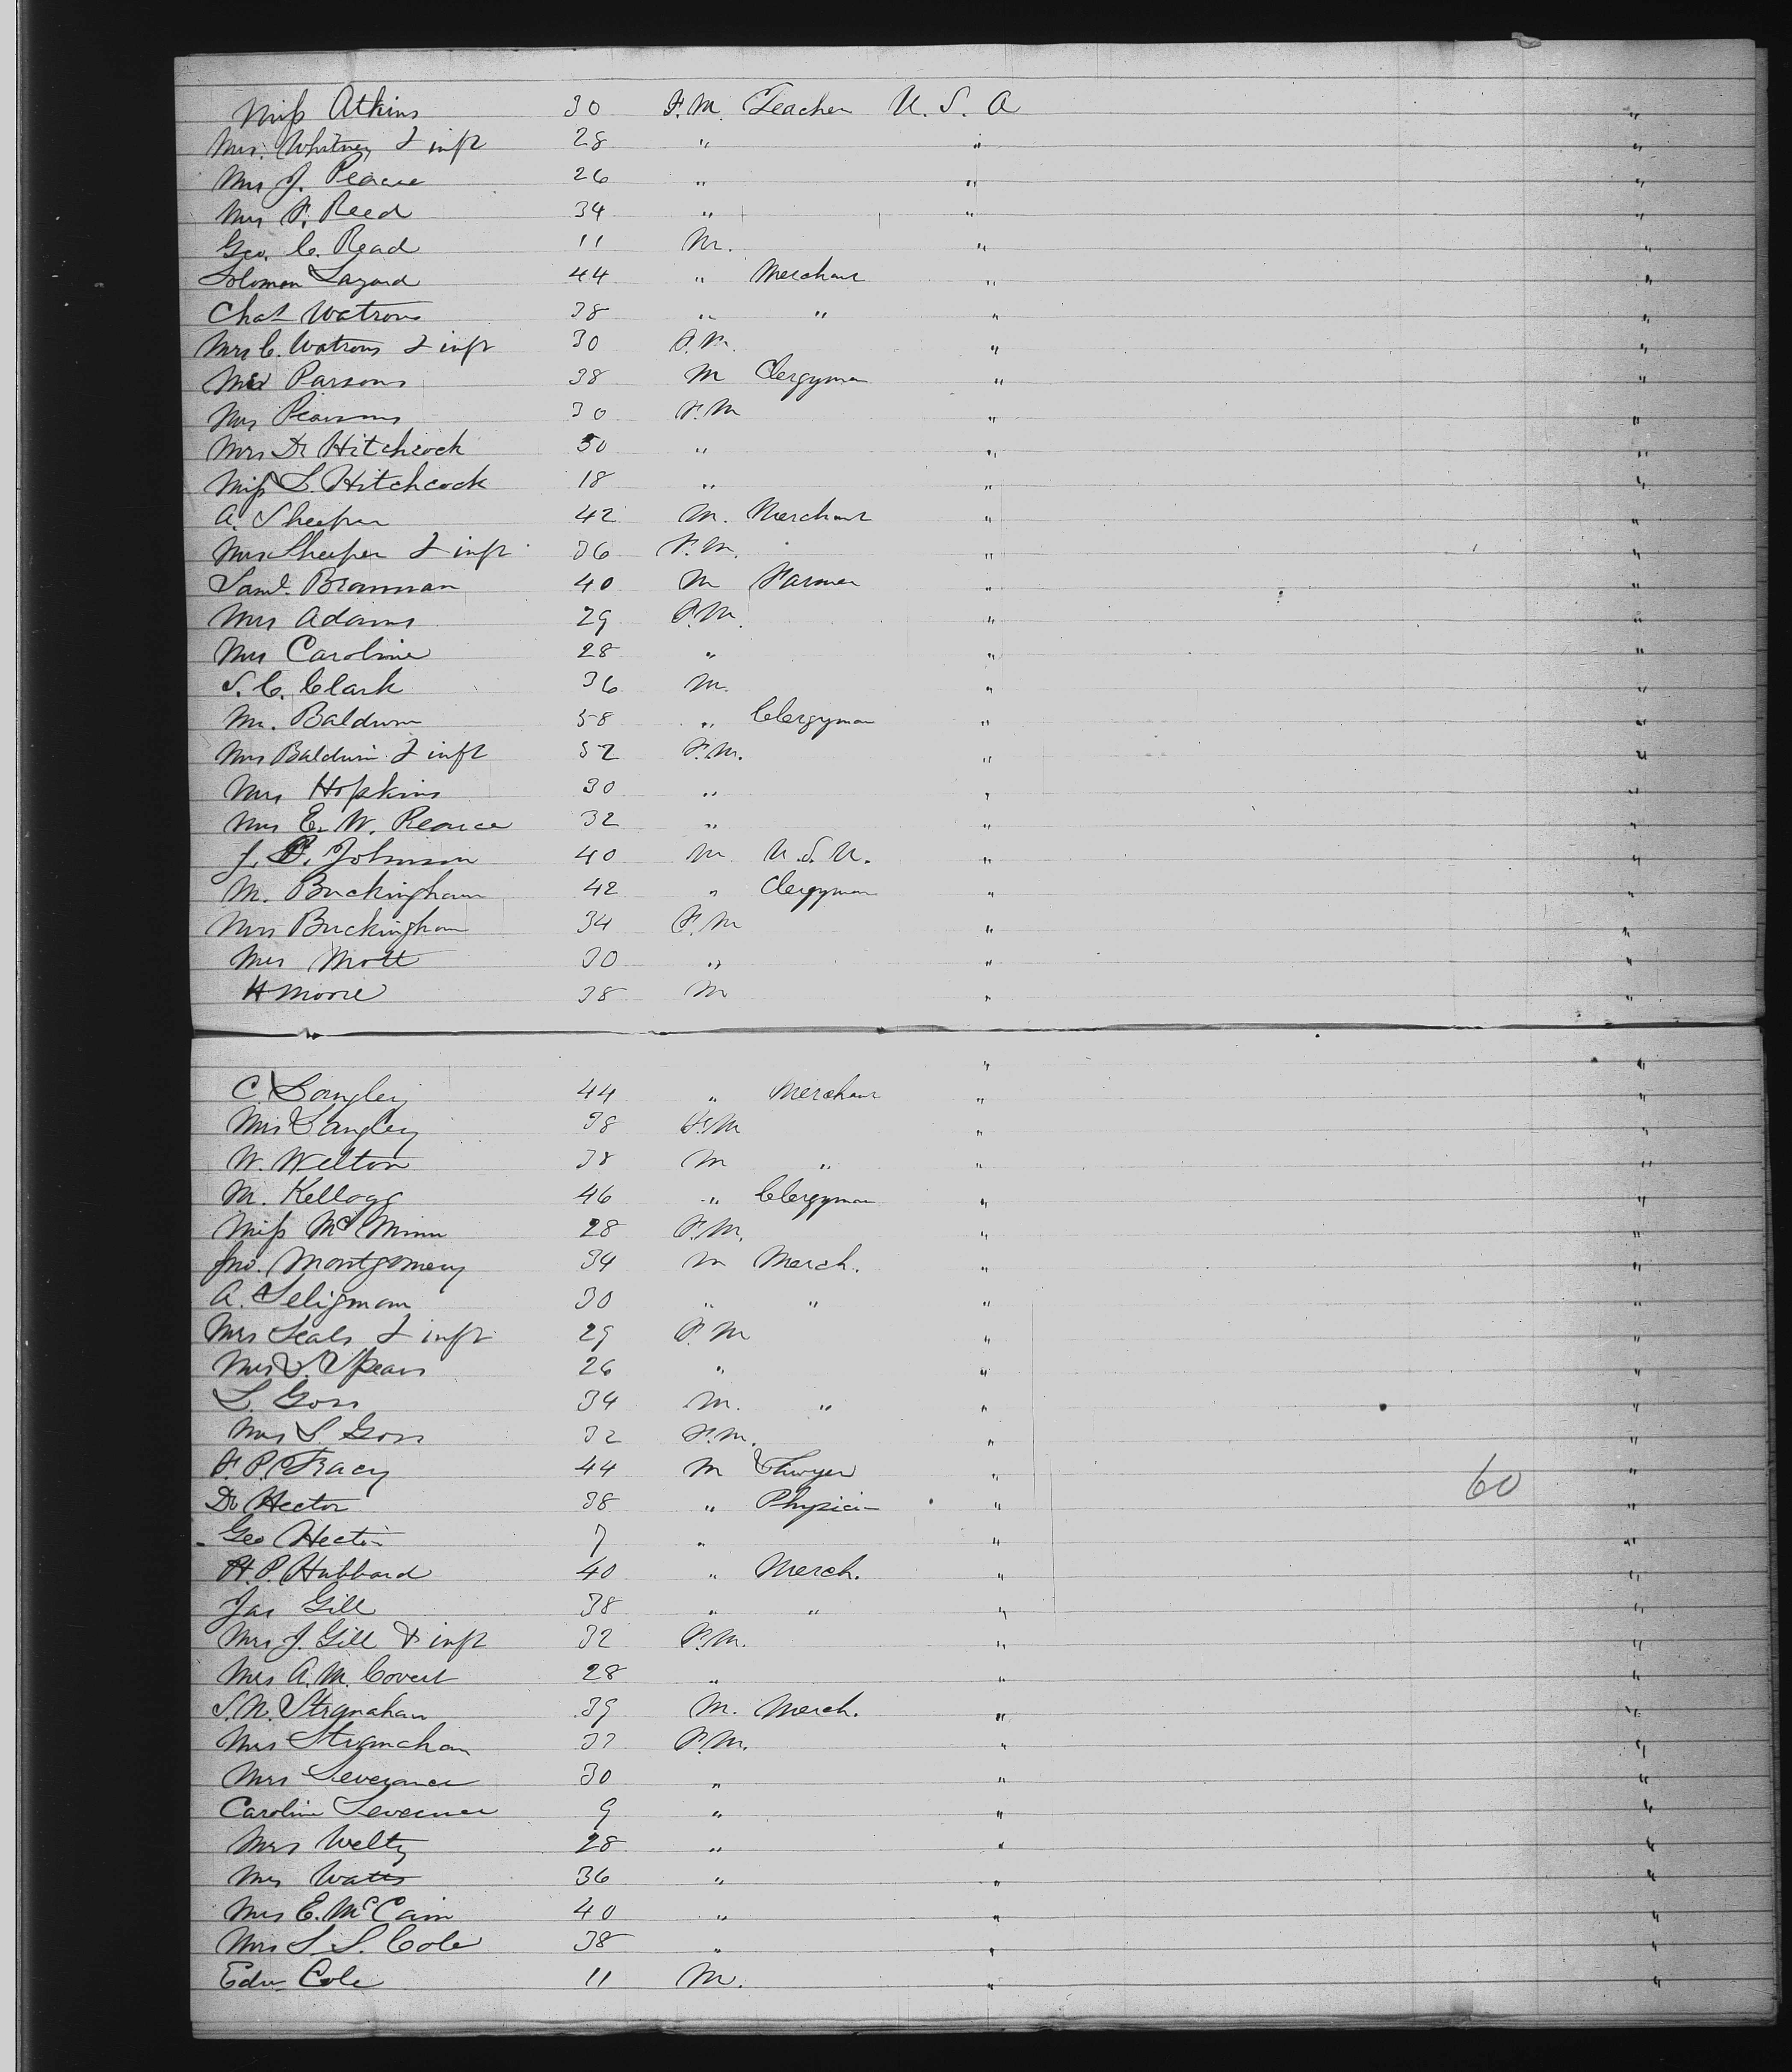 Miss Atkins 30 F.M. Teacher U. S. A "
Mrs. Whitney & inft 28 " " "
Mrs J. Pearce 26 " " "
Mrs F. Reed 34 " " "
Geo. C. Read 11 M. " "
Solomon Lazard 44 " Merchant " "
Chas Watrous 38 " " " "
Mrs C. Watrous & inft 30 F.M. " "
Mr Parsons 38 M Clergyman " "
Mrs Pearsons 30 F.M " "
Mrs Dr Hitchcock 50 " " "
Miss L. Hitchcock 18 " " "
A. Sheeper 42 M. Merchant " "
Mrs Sheeper & inft 36 F.M. " "
Saml. Brannan 40 M Farmer " "
Mrs Adams 29 F.M. " "
Mrs Caroline 28 " " "
S. C. Clark 36 M. " "
Mr. Baldwin 58 " Clergyman " "
Mrs Baldwin & inft 52 F.M. " "
Mrs Hopkins 30 " " "
Mrs E. W. Pearce 32 " " "
J. Johnson 40 M. U.S.N. " "
M. Buckingham 42 " Clergyman " "
Mrs Buckingham 34 F.M " "
Mrs Mott 30 " " "
H Moore 38 M " "
" "
C. Langley 44 " Merchant " "
Mrs Langley 38 F.M " "
W. Welton 38 M " " "
M. Kellogg 46 " Clergyman " "
Miss McMinn 28 F.M. " "
Jno. Montgomery 34 M Merch. " "
A. Seligman 30 " " " "
Mrs Seals & inft 29 F.M " "
Mrs S. Spears 26 " " "
L. Goss 34 M. " " "
Mrs L. Goss 32 F.M. " "
F. P. Tracy 44 M Lawyer " "
60
Dr Hector 38 " Physici— " "
Geo Hector 7 " " "
H. P. Hubbard 40 " Merch. " "
Jas Gill 38 " " " "
Mrs J. Gill & inft 32 F.M. " "
Mrs A. M. Covert 28 " " "
S. N. Stranahan 39 M. Merch. " "
Mrs Stranchan 37 F.M. " "
Mrs Severance 30 " " "
Caroline Severance 9 " " "
Mrs Welty 28 " " "
Mrs Watts 36 " " "
Mrs E. McCain 40 " " "
Mrs S. S. Cole 38 " " "
Edw Cole 11 M. " "